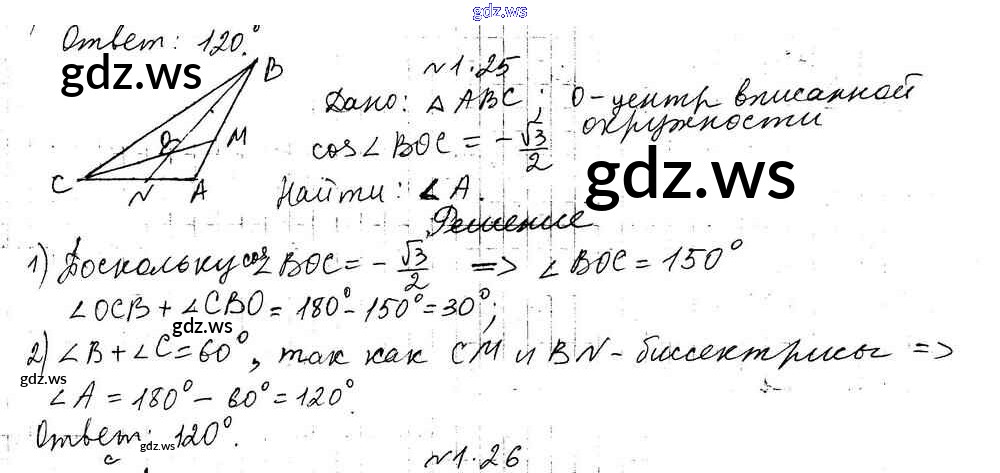 gdz.ws
Ответ: 120°.
gdz.ws
B
M
O
C
N
A
№1.25
Дано: △ABC; O-центр вписанной
окружности
cos∠BOC = -√3/2
gdz.ws
Найти: ∠A.
Решение
1) Поскольку cos∠BOC = -√3/2 => ∠BOC = 150°
∠OCB + ∠CBO = 180° - 150° = 30°;
gdz.ws
2) ∠B + ∠C = 60°, так как CM и BN - биссектрисы =>
gdz.ws
∠A = 180° - 60° = 120°.
Ответ: 120°.
gdz.ws
gdz.ws
№1.26